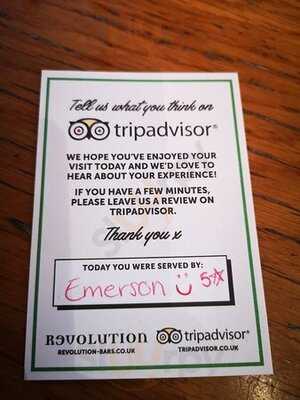 Tell us what you think on
tripadvisor®
WE HOPE YOU'VE ENJOYED YOUR
VISIT TODAY AND WE'D LOVE TO
HEAR ABOUT YOUR EXPERIENCE!
IF YOU HAVE A FEW MINUTES,
PLEASE LEAVE US A REVIEW ON
TRIPADVISOR.
Thank you x
TODAY YOU WERE SERVED BY:
Emerson 5☆
REVOLUTION
REVOLUTION-BARS.CO.UK
tripadvisor®
TRIPADVISOR.CO.UK